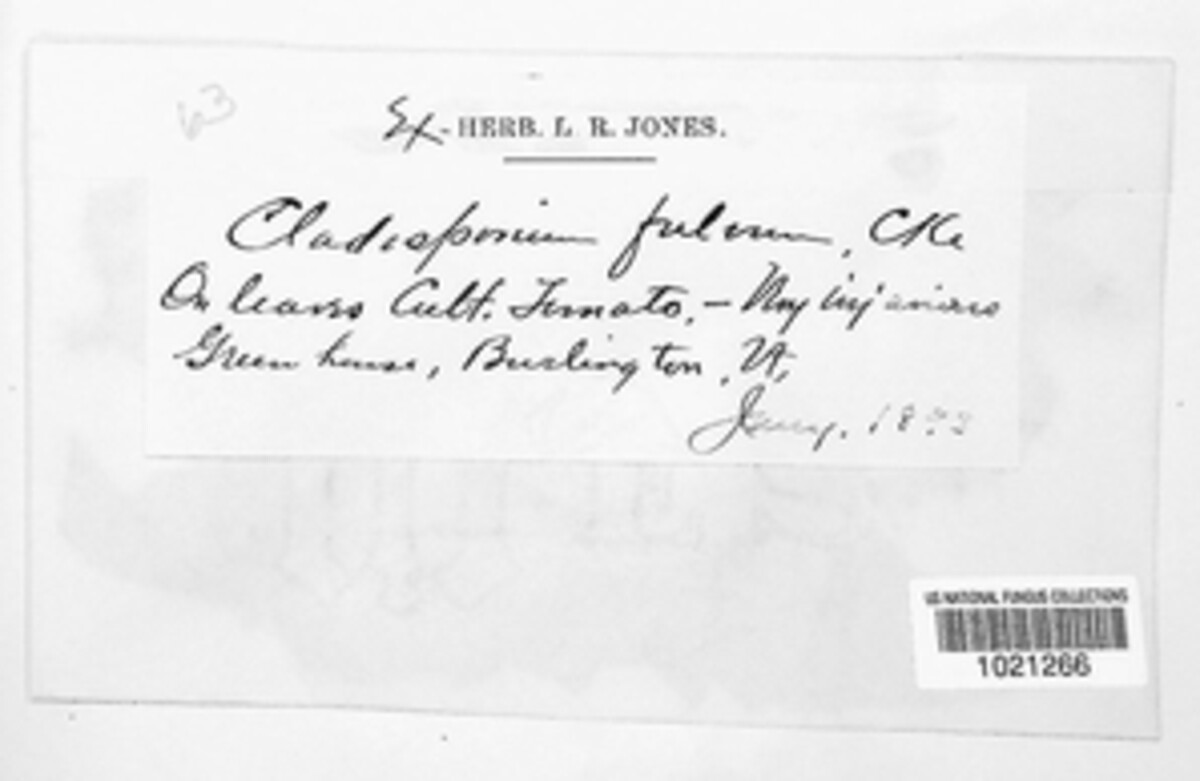 63
Ex- HERB. L. R. JONES.
Cladosporium fulvum, CKe
On leaves Cult. Tomato, - Very injurious
Green house, Burlington, Vt,
Jany. 18
US NATIONAL FUNGUS COLLECTIONS
1021266